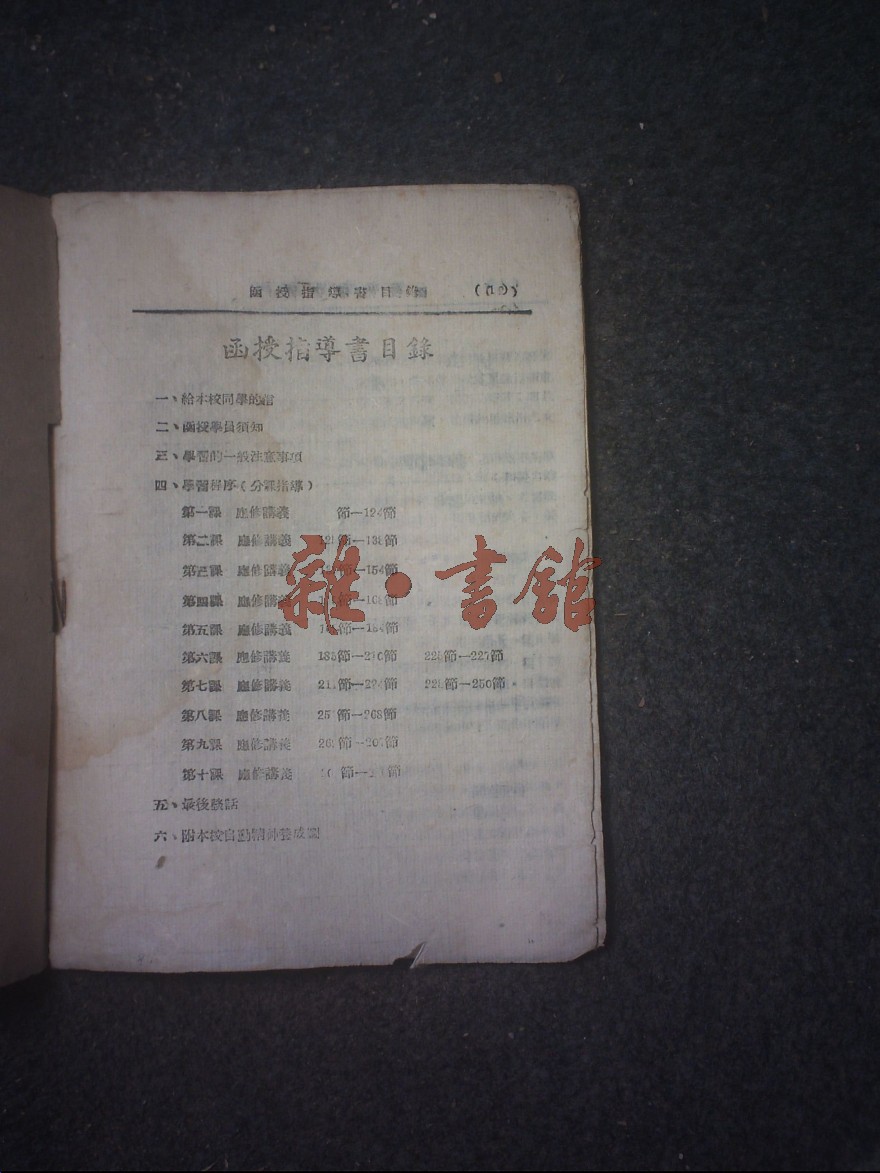 函授指導書目錄
函授指導書目錄
一、給本校同學的信
二、函授學員須知
三、學習的一般注意事項
四、學習程序(分課指導)
第一課 應修講義 節—124節
第二課 應修講義 125節—138節
第三課 應修講義 節—154節
第四課 應修講義 節
第五課 應修講義 節
第六課 應修講義 185節—210節 225節—227節
第七課 應修講義 211節—224節 228節—250節
第八課 應修講義 251節—268節
第九課 應修講義 節
第十課 應修講義 節
五、最後談話
六、附本校自動精神養成
雜·書館